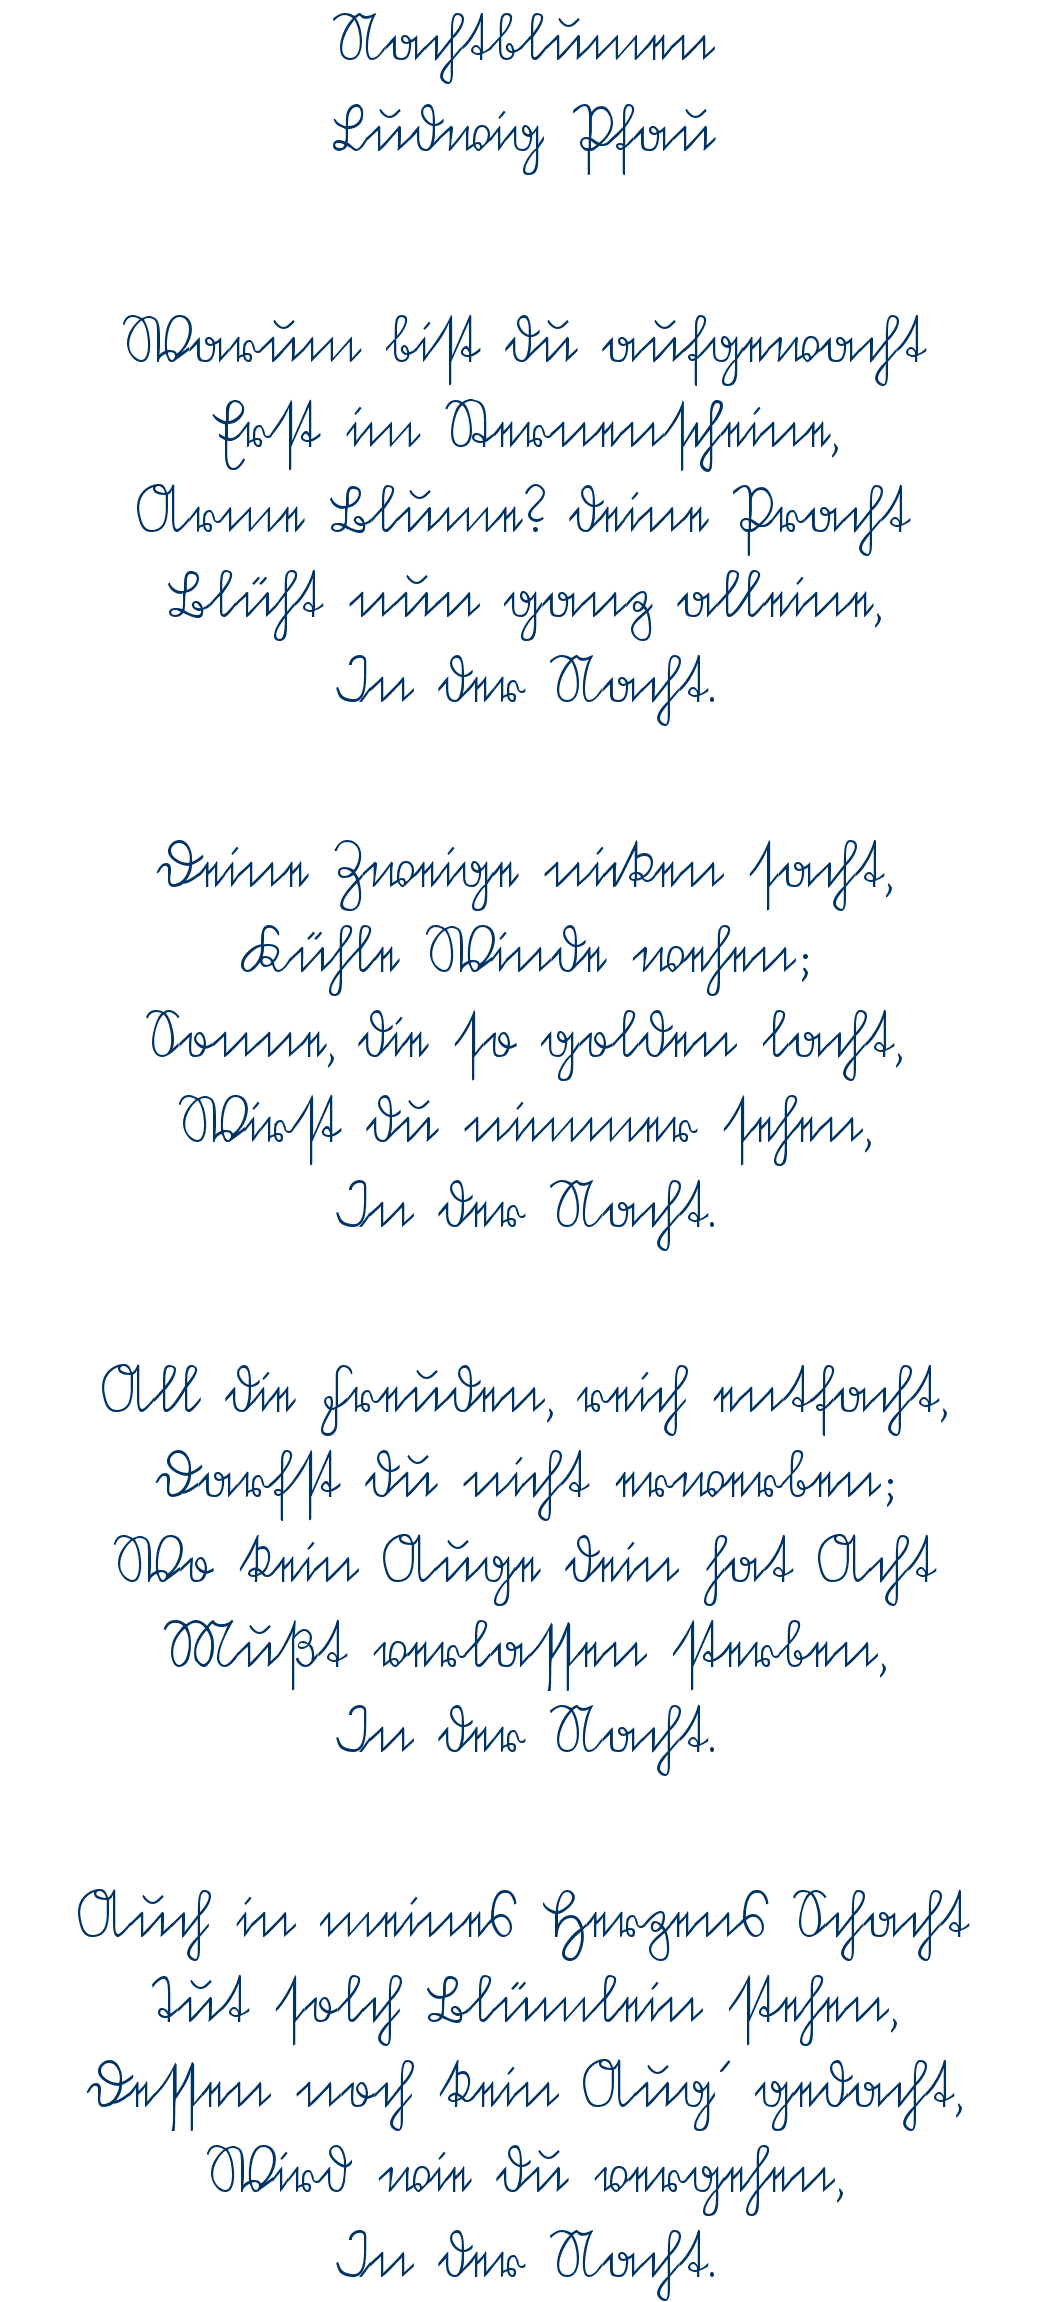 Nachtblumen
Ludwig Pfau
Warum bist du aufgewacht
Erst im Sternenscheine,
Arme Blume? deine Pracht
Blüht nun ganz alleine,
In der Nacht.
Deine Zweige nicken sacht,
Kühle Winde wehen;
Sonne, die so golden lacht,
Wirst du nimmer sehen,
In der Nacht.
All die Freuden, reich entfacht,
Darfst du nicht erwerben;
Wo kein Auge dein hat Acht
Mußt verlassen sterben,
In der Nacht.
Auch in meines Herzens Schacht
Tut solch Blümlein stehen,
Dessen noch kein Aug´ gedacht,
Wird wie du vergehen,
In der Nacht.